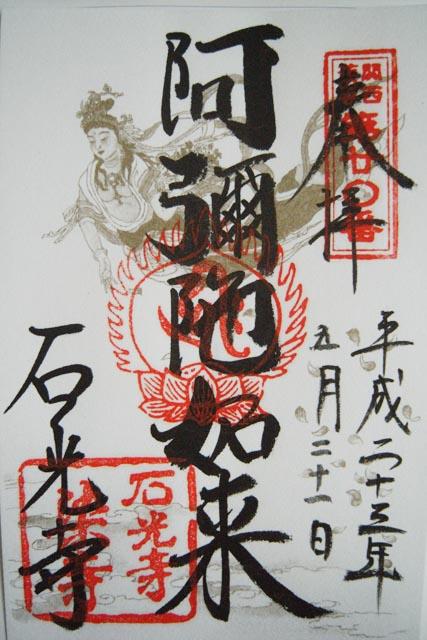 奉拝
関西
第廿〇番
平成二十三年
五月二十一日
阿彌陀如来
石光寺
石光寺